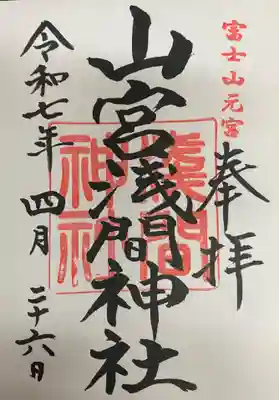 富士山元宮
奉拝
山宮浅間神社
浅間神社
令和七年 四月 二十六日